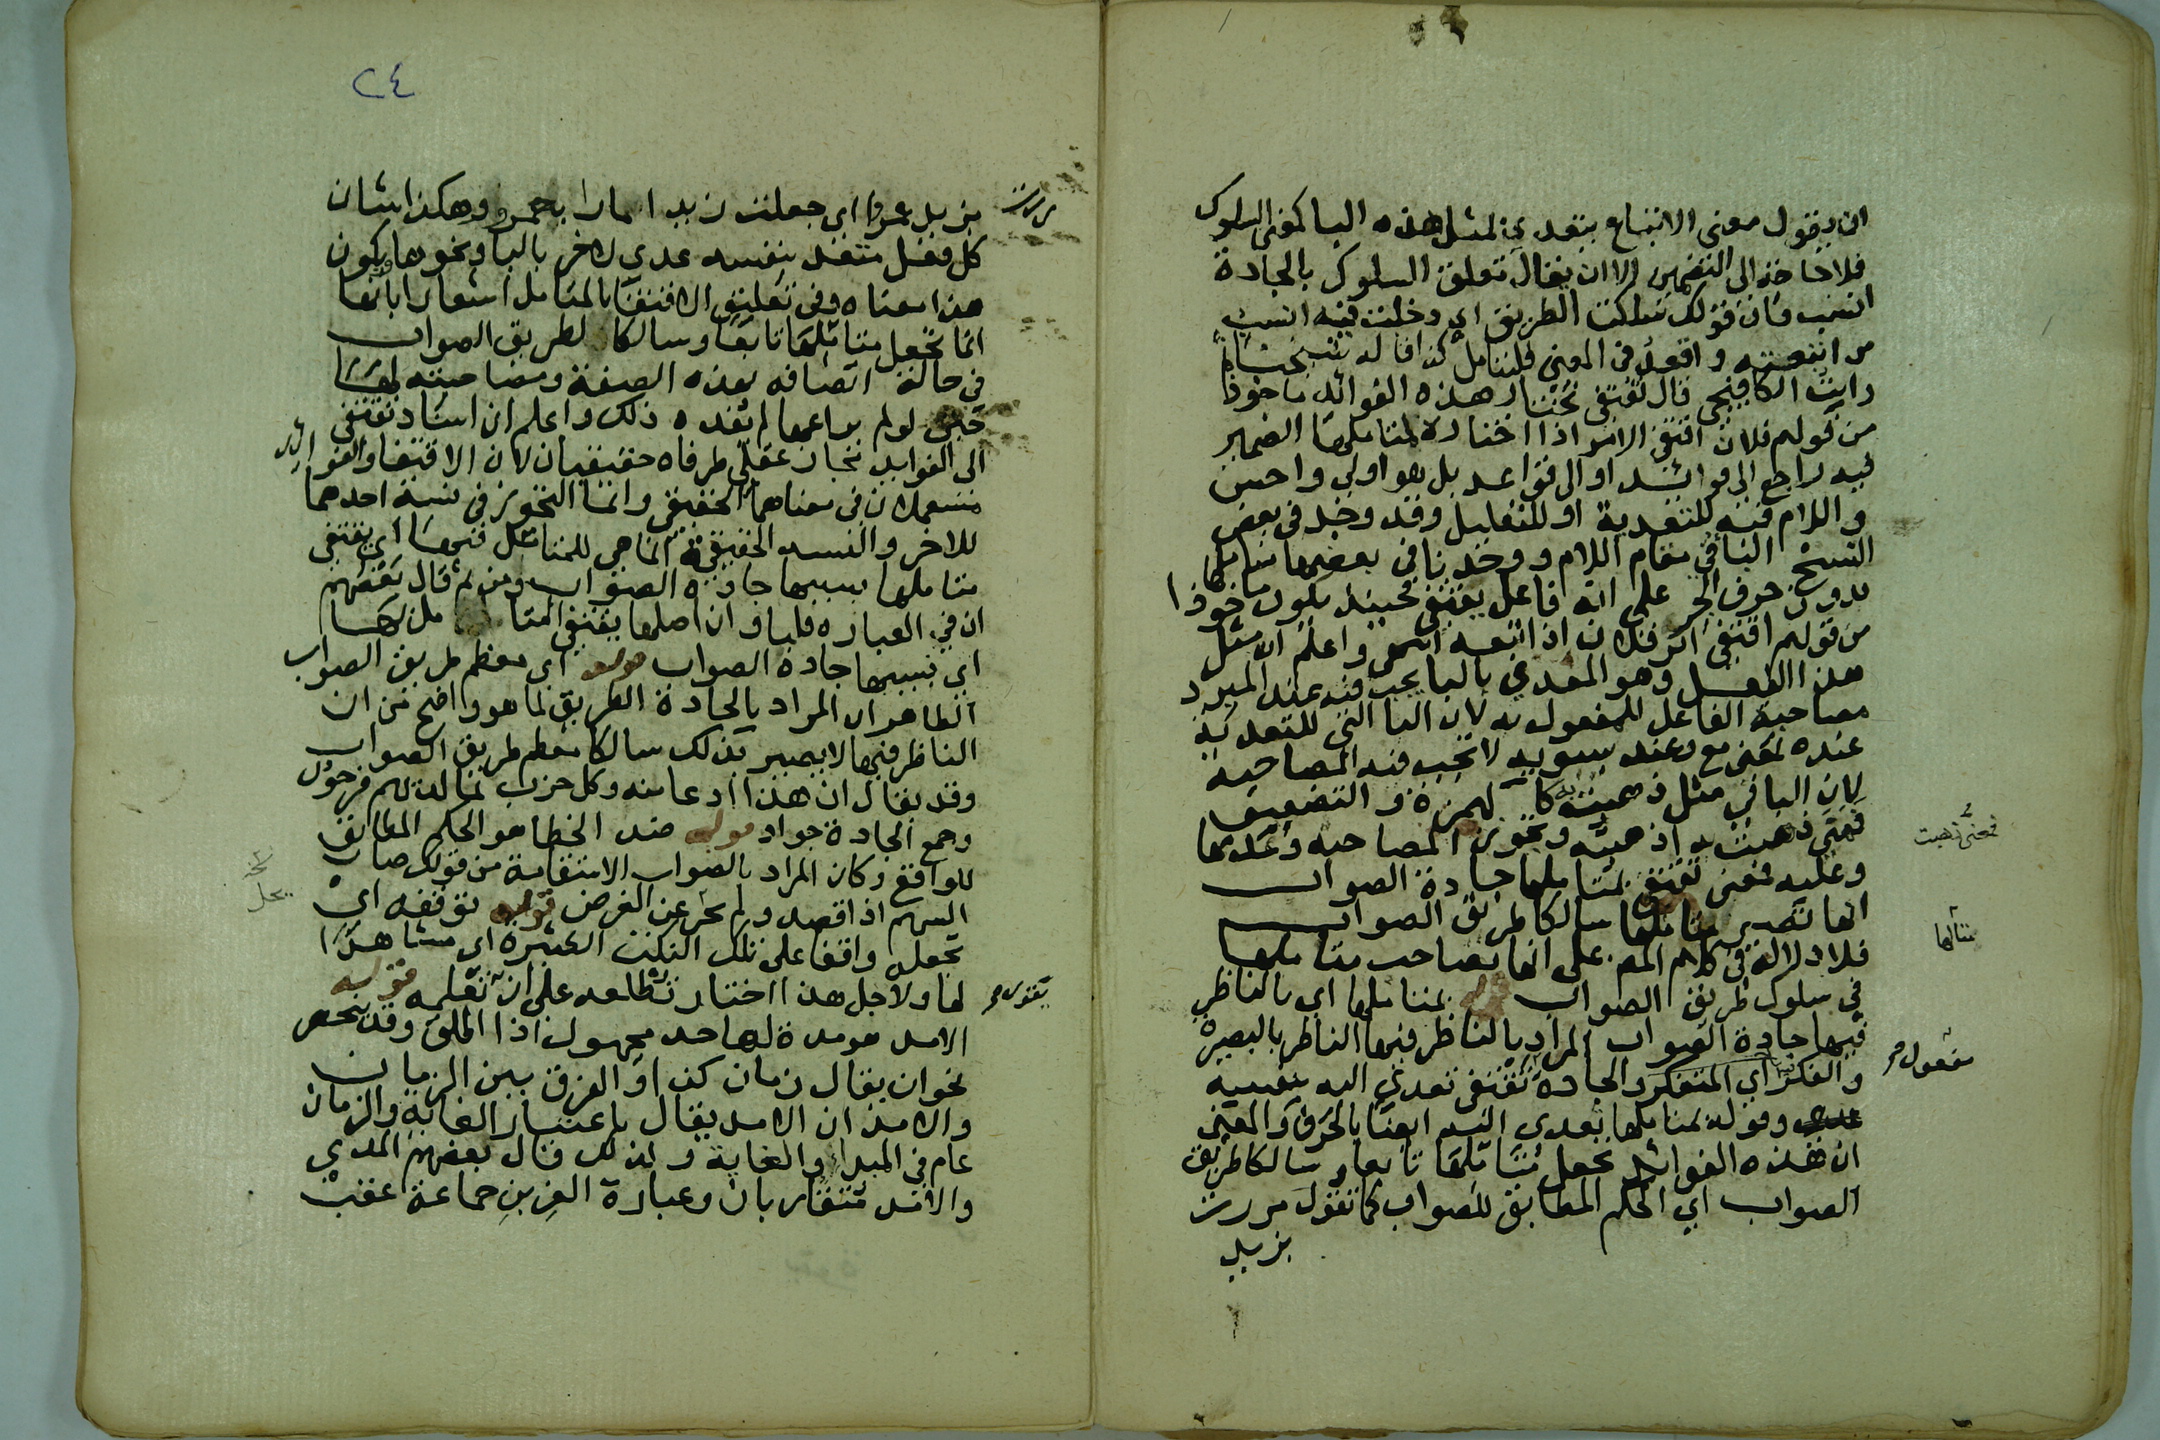 ان يقول معنى الاتباع يتعدى لمثل هذه البا كمعنى السلوك
فلا حاجة الى التضمين الا ان يقال تعلق السلوك بالجادة
انسب فان قولك سلكت الطريق اي دخلت فيه انسب
من اتبعته واقعد في المعنى فليتامل كذا قاله
رايت الكافيجي قال تقتفي تختار هذه الفوائد ماخوذا
من قولهم فلان اقتفى الامر اذا اختاره لمتاملها الضمير
فيه راجع الى فوائد او الى قواعد بل هو اولى واحسن
واللام فيه للتعدية او للتعليل وقد وجد في بعض
النسخ البا في مقام اللام ووجدنا في بعضها متاملها
بدون حرف الجر على انه فاعل يقتفي فحينئذ يكون ماخوذا
من قولهم اقتفى اثر فلان اذا اتبعه انتهى واعلم ان مثل
هذا الفعل وهو المعدي بالبا يجب فيه عند المبرد
مصاحبة الفاعل للمفعول به لان البا التي للتعدية
عنده بمعنى مع وعند سيبويه لا تجب فيه المصاحبة
لان البا في مثل ذهبت به كالهمزة والتضعيف
فمعنى ذهبت به اذهبته وتجوز المصاحبة وعدمها
وعليه فمعنى تقتفي بمتاملها جادة الصواب
انها تصير متاملها سالكا طريق الصواب
فلا دلالة في كلام المص على انها تصاحب متاملها
في سلوك طريق الصواب قوله بمتاملها اي بالناظر
فيها جادة الصواب المراد بالناظر فيها الناظر بالبصيرة
والفكر اي المتفكر والجادة تقتفي تعدي اليه بنفسه
وقوله بمتاملها تعدي اليه ايضا بالحرف والمعنى
ان هذه الفوائد تجعل متاملها تابعا وسالكا طريق
الصواب اي الحكم المطابق للصواب كما تقول مررت
بزيد
فمعنى ذهبت
متاملها
مفعول
٢٤
بزيد عمروا اي جعلت زيدا مارا بعمرو وهكذا شان
كل فعل متعد بنفسه عدي لاخر بالبا ونحوها يكون
هذا معناه وفي تعليق الاقتفا بالمتامل اشعار بانها
انما تجعل متاملها تابعا وسالكا لطريق الصواب
في حالة اتصافه بهذه الصفة ومصاحبته لها
حتى لو لم يراعها لم تفده ذلك واعلم ان اسناد تقتفي
الى الفوايد مجاز عقلي طرفاه حقيقيان لان الاقتفا والفوائد
مستعملان في معناهما الحقيقي وانما التجوز في نسبة احدهما
للاخر والنسبة الحقيقية انما هي للمتامل فيها اي يقتفي
متاملها بسببها جادة الصواب ومن ثم قال بعضهم
ان في العبارة قلبا وان اصلها يقتفي المتامل لها
اي بسببها جادة الصواب قوله اي معظم طريق الصواب
الظاهر ان المراد بالجادة الطريق لما هو واضح من ان
الناظر فيها لا يصير بذلك سالكا معظم طريق الصواب
وقد يقال ان هذا ادعا منه وكل حزب بما لديهم فرحون
وجمع الجادة جواد قوله ضد الخطا هو الحكم المطابق
للواقع وكان المراد بالصواب الاستقامة من قولك صاب
السهم اذا قصد ولم يحز عن الغرض قوله توقفه اي
تجعله واقفا على تلك النكت الكثيرة اي مشاهدا
لها ولاجل هذا اختار تطلعه على ان تعلمه قوله
الامد هو مدة لها حد مجهول اذا اطلق وقد ينحصر
نحو ان يقال زمان كذا والفرق بين الزمان
والامد ان الامد يقال باعتبار الغاية والزمان
عام في المبدا والغاية ولذلك قال بعضهم المدى
والامد متقاربان وعبارة العز بن جماعة عقب